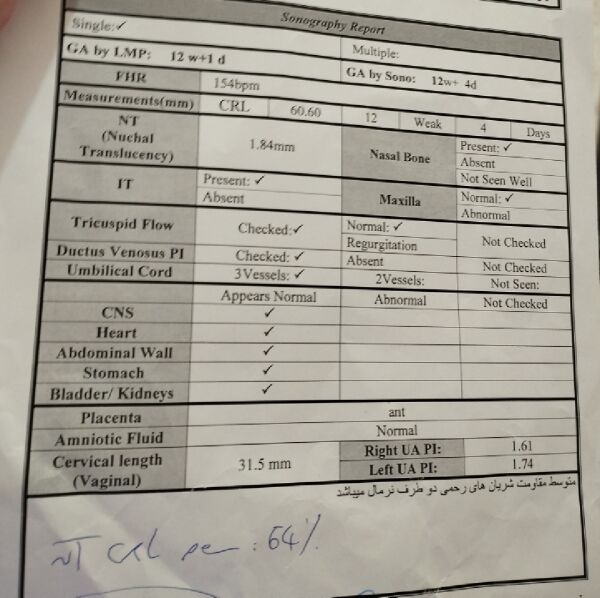 Sonography Report
Single:✓ Multiple:
GA by LMP: 12 w+1 d GA by Sono: 12w+ 4d
FHR 154bpm
Measurements(mm) CRL 60.60 12 Weak 4 Days
NT (Nuchal Translucency) 1.84mm Nasal Bone Present: ✓
Absent
Not Seen Well
IT Present: ✓ Maxilla Normal: ✓
Absent Abnormal
Tricuspid Flow Checked:✓ Normal: ✓ Not Checked
Regurgitation
Ductus Venosus PI Checked: ✓ Absent Not Checked
Umbilical Cord 3Vessels: ✓ 2Vessels: Not Seen:
Appears Normal Abnormal Not Checked
CNS ✓
Heart ✓
Abdominal Wall ✓
Stomach ✓
Bladder/ Kidneys ✓
Placenta ant
Amniotic Fluid Normal
Cervical length (Vaginal) 31.5 mm Right UA PI: 1.61
Left UA PI: 1.74
متوسط مقاومت شریان های رحمی دو طرف نرمال میباشد
NT CRL per : 64%